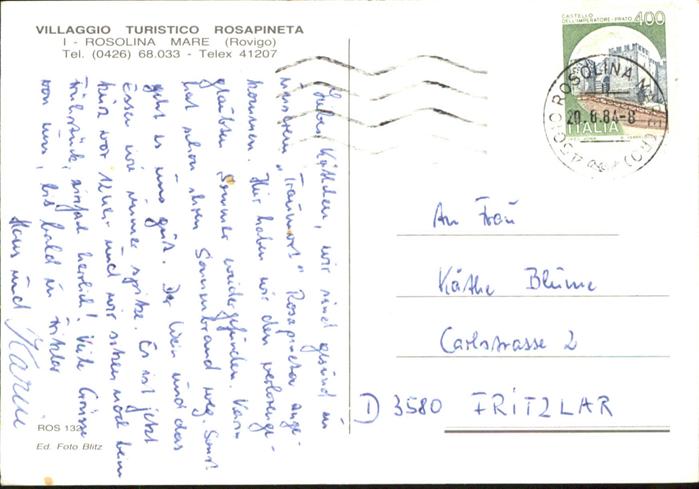 VILLAGGIO TURISTICO ROSAPINETA
I - ROSOLINA MARE (Rovigo)
Tel. (0426) 68.033 - Telex 41207
Liebes Käthchen, wir sind gesund in
unserem "Traumort" Rosapineta ange-
kommen. Hier haben wir den verlorenge-
glaubten Sommer wiedergefunden. Karin
hat schon ihren Sonnenbrand weg. Sonst
geht es uns gut. Der Wein und das
Essen wie immer spitze. Es ist jetzt
kurz vor 12 Uhr und wir sitzen noch beim
Frühstück, einfach herrlich! Viele Grüsse
von uns, bis bald in Fritzlar
Hans und Karin
ROS 132
Ed. Foto Blitz
CASTELLO
DELL'IMPERATORE - PRATO
400
ITALIA
ROSOLINA
20.8.84-8
(RO)
An Frau
Käthe Blume
Carlstrasse 2
D 3580 FRITZLAR